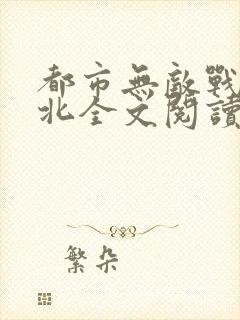 都市無敵戰
北全文閱讀
繁朵